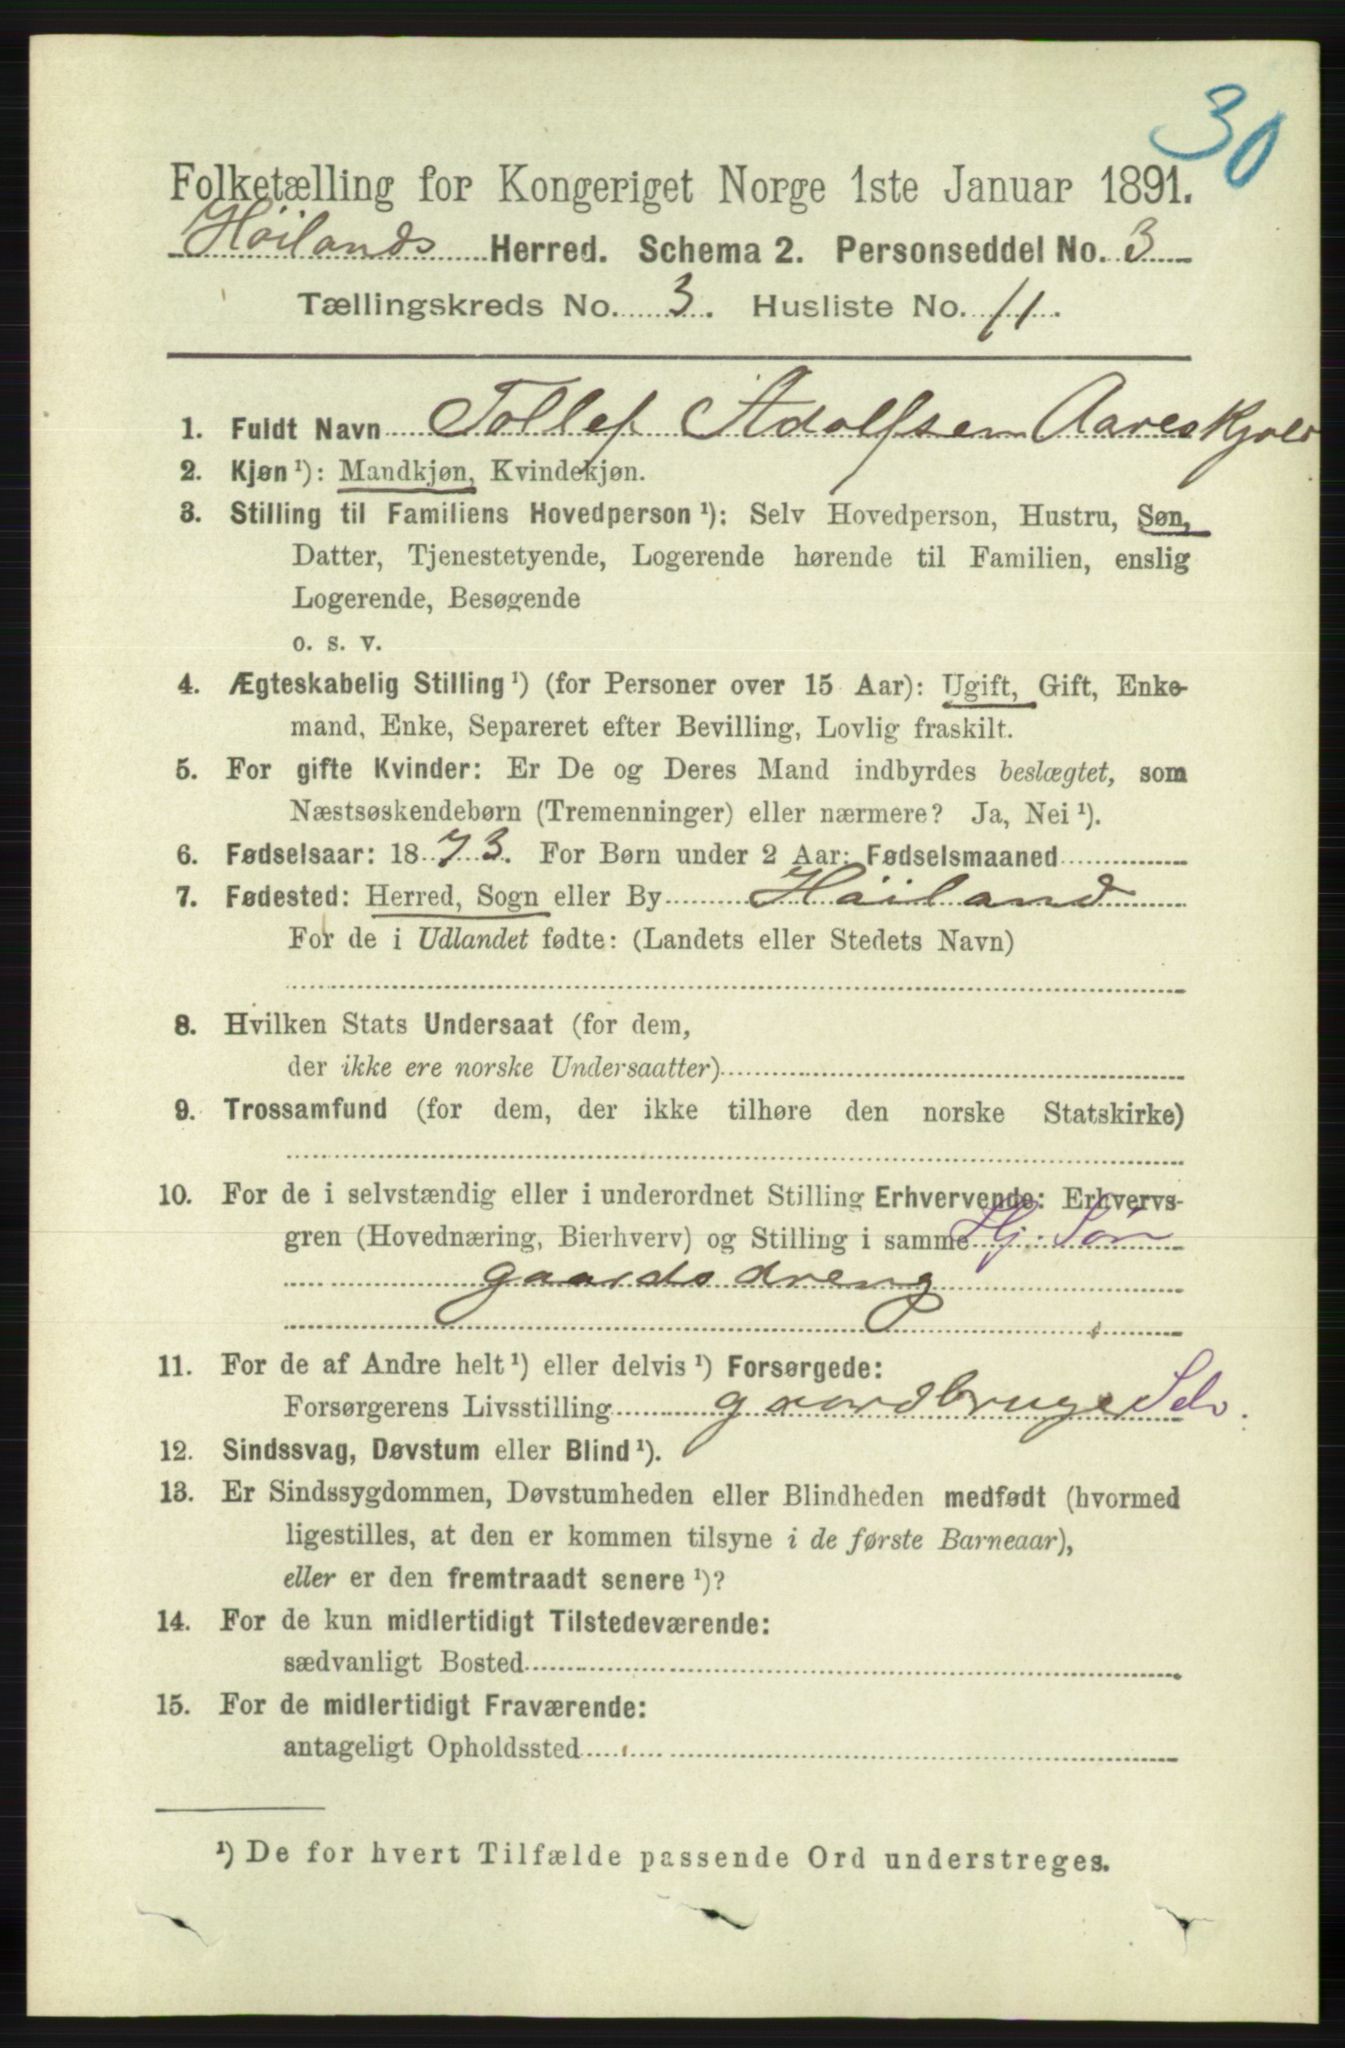 30
Folketælling for Kongeriget Norge 1ste Januar 1891.
Høilands Herred. Schema 2. Personseddel No. 3
Tællingskreds No. 3. Husliste No. 11.
1. Fuldt Navn Tollef Adolfsen Aareskjold
2. Kjøn ¹): Mandkjøn, Kvindekjøn.
3. Stilling til Familiens Hovedperson ¹): Selv Hovedperson, Hustru, Søn,
Datter, Tjenestetyende, Logerende hørende til Familien, enslig
Logerende, Besøgende
o. s. v.
4. Ægteskabelig Stilling ¹) (for Personer over 15 Aar): Ugift, Gift, Enke-
mand, Enke, Separeret efter Bevilling, Lovlig fraskilt.
5. For gifte Kvinder: Er De og Deres Mand indbyrdes beslægtet, som
Næstsøskendebørn (Tremenninger) eller nærmere? Ja, Nei ¹).
6. Fødselsaar: 1873. For Børn under 2 Aar: Fødselsmaaned
7. Fødested: Herred, Sogn eller By Høiland
For de i Udlandet fødte: (Landets eller Stedets Navn)
8. Hvilken Stats Undersaat (for dem,
der ikke ere norske Undersaatter)
9. Trossamfund (for dem, der ikke tilhøre den norske Statskirke)
10. For de i selvstændig eller i underordnet Stilling Erhvervende: Erhvervs-
gren (Hovednæring, Bierhverv) og Stilling i samme Hj. Søn
gaardsdreng
11. For de af Andre helt ¹) eller delvis ¹) Forsørgede:
Forsørgerens Livsstilling gaardbruger Selv.
12. Sindssvag, Døvstum eller Blind ¹).
13. Er Sindssygdommen, Døvstumheden eller Blindheden medfødt (hvormed
ligestilles, at den er kommen tilsyne i de første Barneaar),
eller er den fremtraadt senere ¹)?
14. For de kun midlertidigt Tilstedeværende:
sædvanligt Bosted
15. For de midlertidigt Fraværende:
antageligt Opholdssted
¹) De for hvert Tilfælde passende Ord understreges.